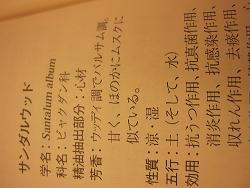 サンダルウッド
学名：Santalum album
科名：ビャクダン科
精油抽出部分：心材
芳香：ウッディ調でバルサム調。
甘く、ほのかにムスクに
似ている。
性質：涼・湿
五行：土（そして、水）
効用：抗うつ作用、抗真菌作用、
消炎作用、抗感染作用、
収れん作用、去痰作用、